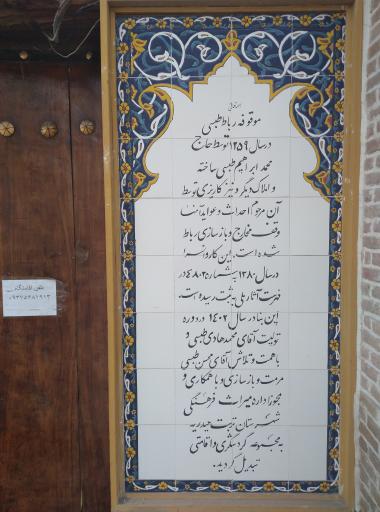 موقوفه رباط طبسی
در سال ۱۲۵۹ توسط حاج
محمد ابراهیم طبسی ساخته
و املاک دیگر و نیز کاریزی توسط
آن مرحوم احداث و عواید آنها
وقف مخارج و بازسازی رباط
شده است. این کاروانسرا
در سال ۱۳۸۰ به شماره ۴۸۰۳ در
فهرست آثار ملی به ثبت رسیده است.
این بنا در سال ۱۴۰۲ در دوره
تولیت آقای محمد هادی طبسی و
با همت و تلاش آقای محسن طبسی
مرمت و بازسازی و با همکاری و
مجوز اداره میراث فرهنگی
شهرستان تربت حیدریه
به مجموعه گردشگری و اقامتی
تبدیل گردید.
تلفن اقامتگاه